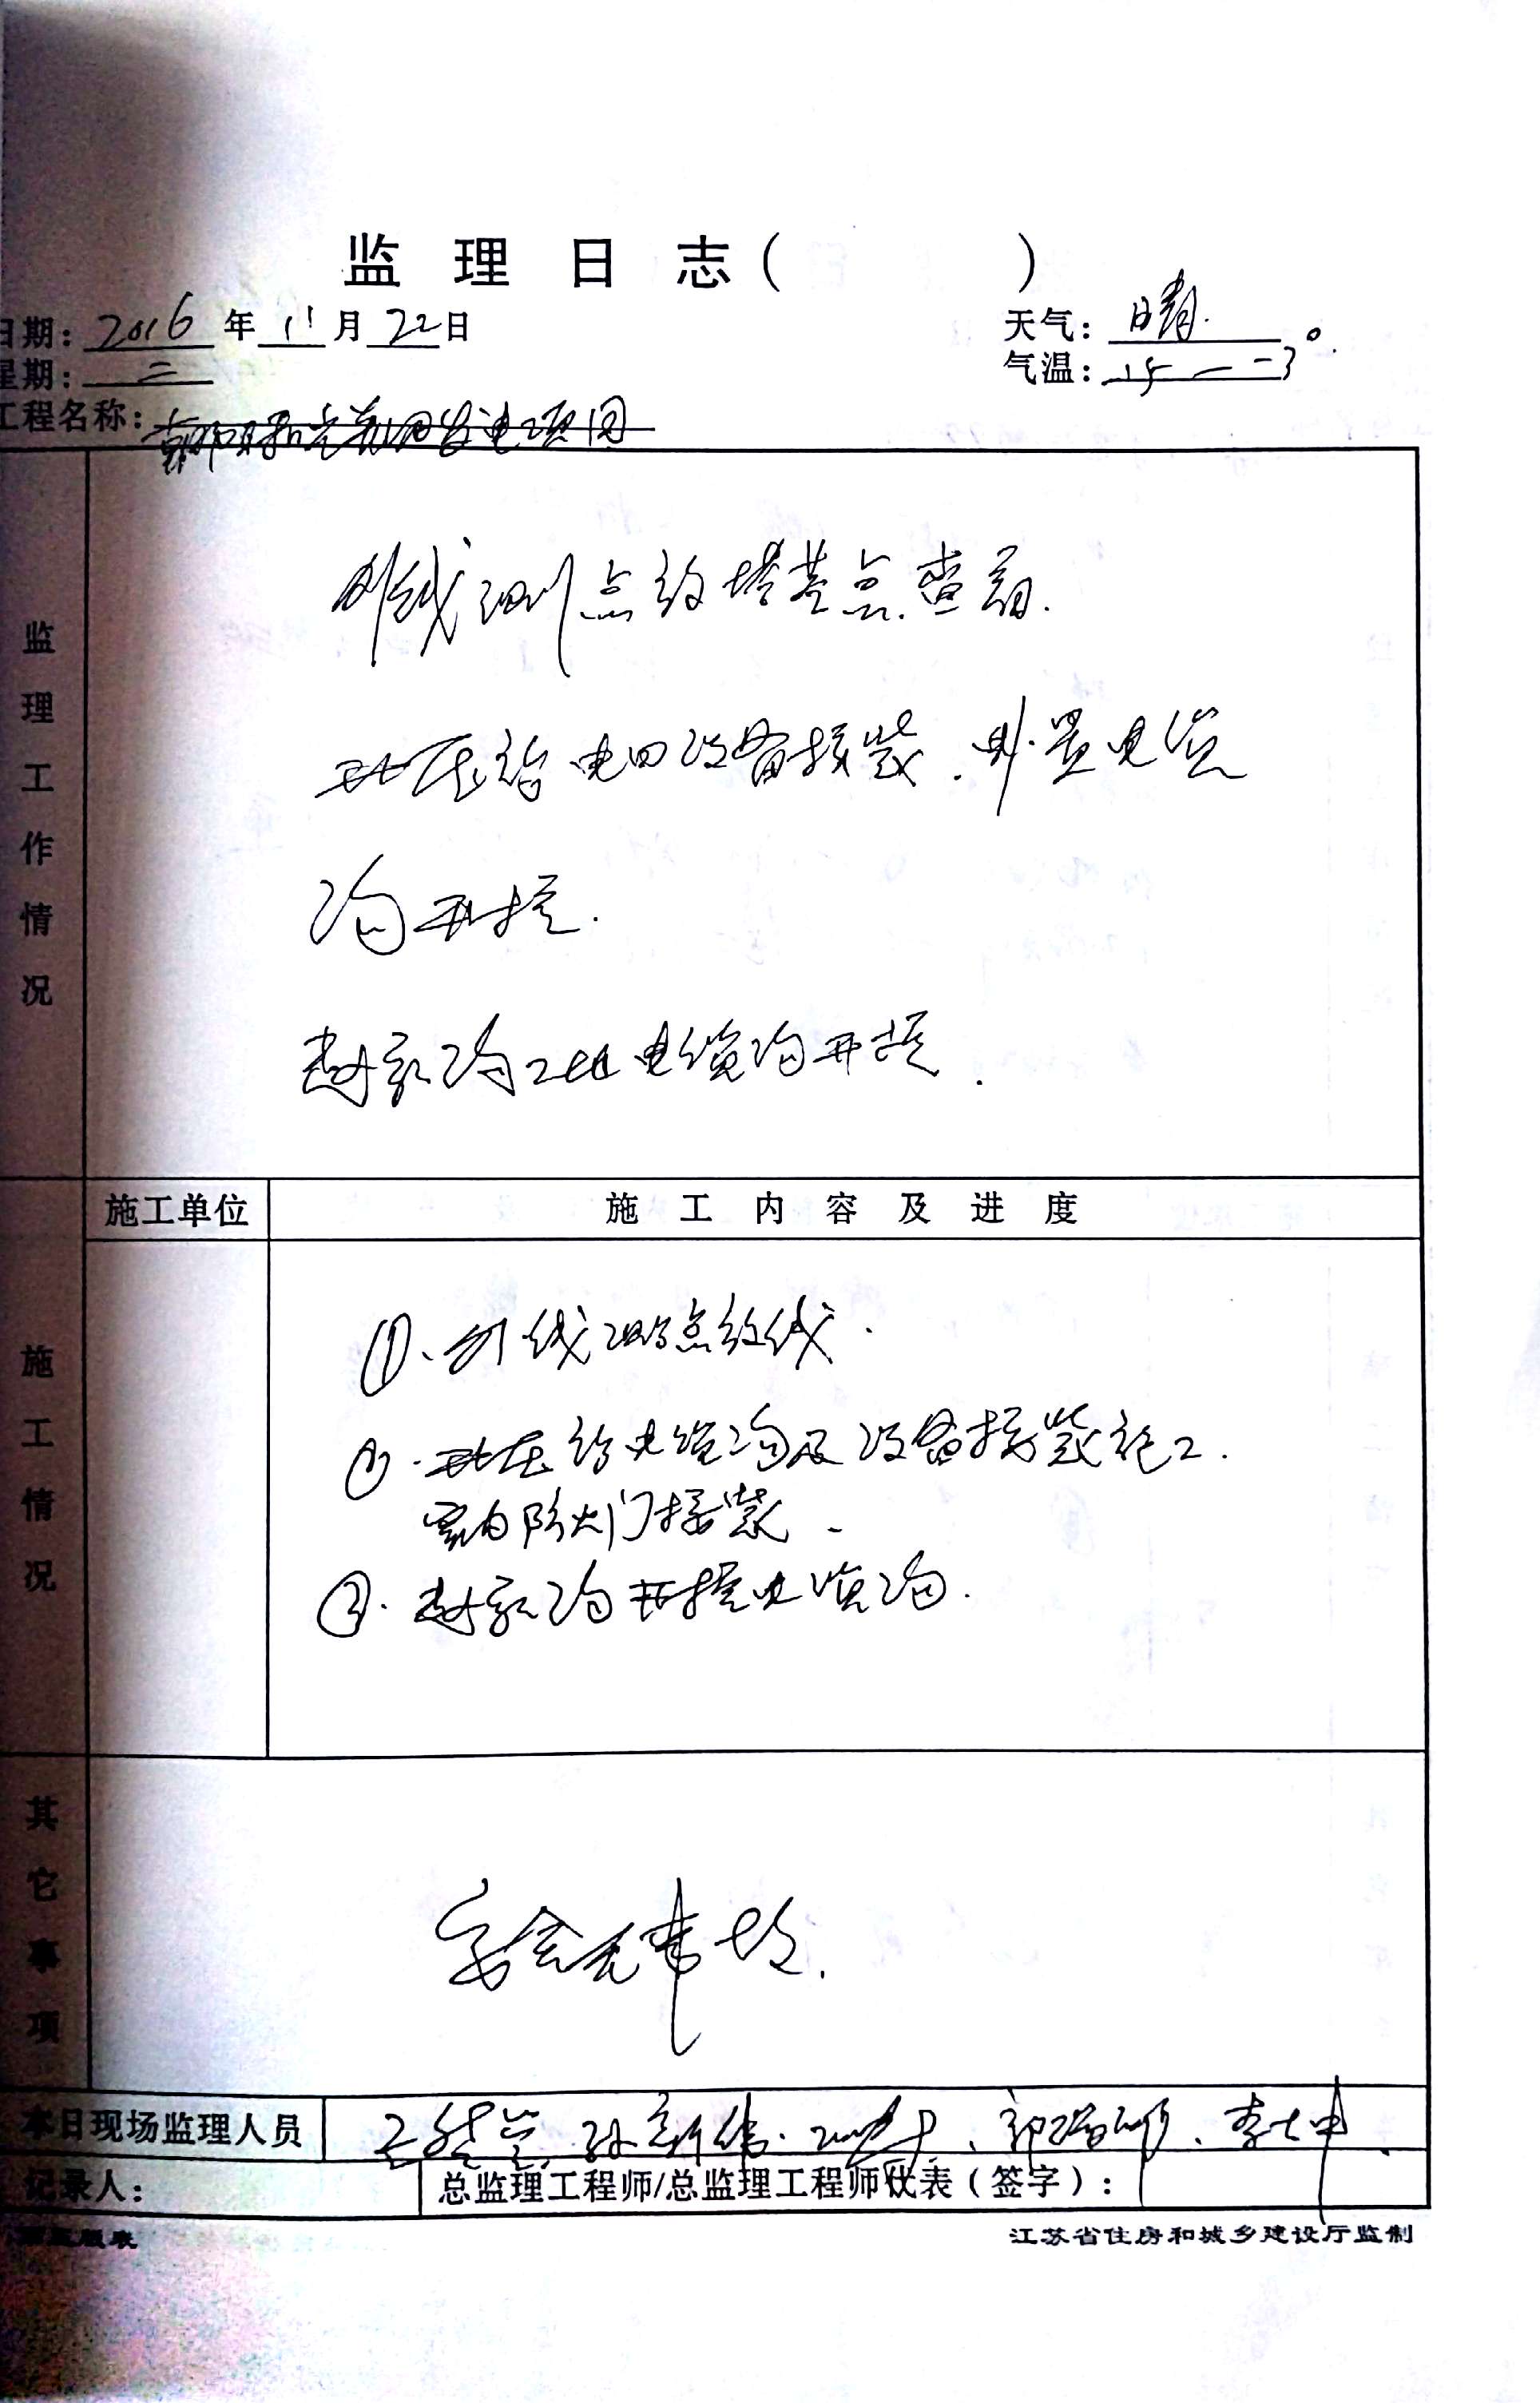 监理日志( )
日期: 2016 年 11 月 22 日
天气: 晴.
星期: 二
气温: 15 — -3°.
工程名称: 朝阳 光 发电项目
外线测点放塔基点查看.
开压站 电四设备接装. 外置电缆
沟开挖.
赵家沟工地电缆沟开挖.
监理工作情况
施工单位
施工内容及进度
①、外线测点放线.
②. 开压站电缆沟及设备接装施工.
室内防火门接装.
③. 赵家沟开挖电缆沟.
施工情况
安全无事故.
其它事项
本日现场监理人员
孙新伟. 、郭 、李士申
记录人:
总监理工程师/总监理工程师代表(签字):
江苏省住房和城乡建设厅监制